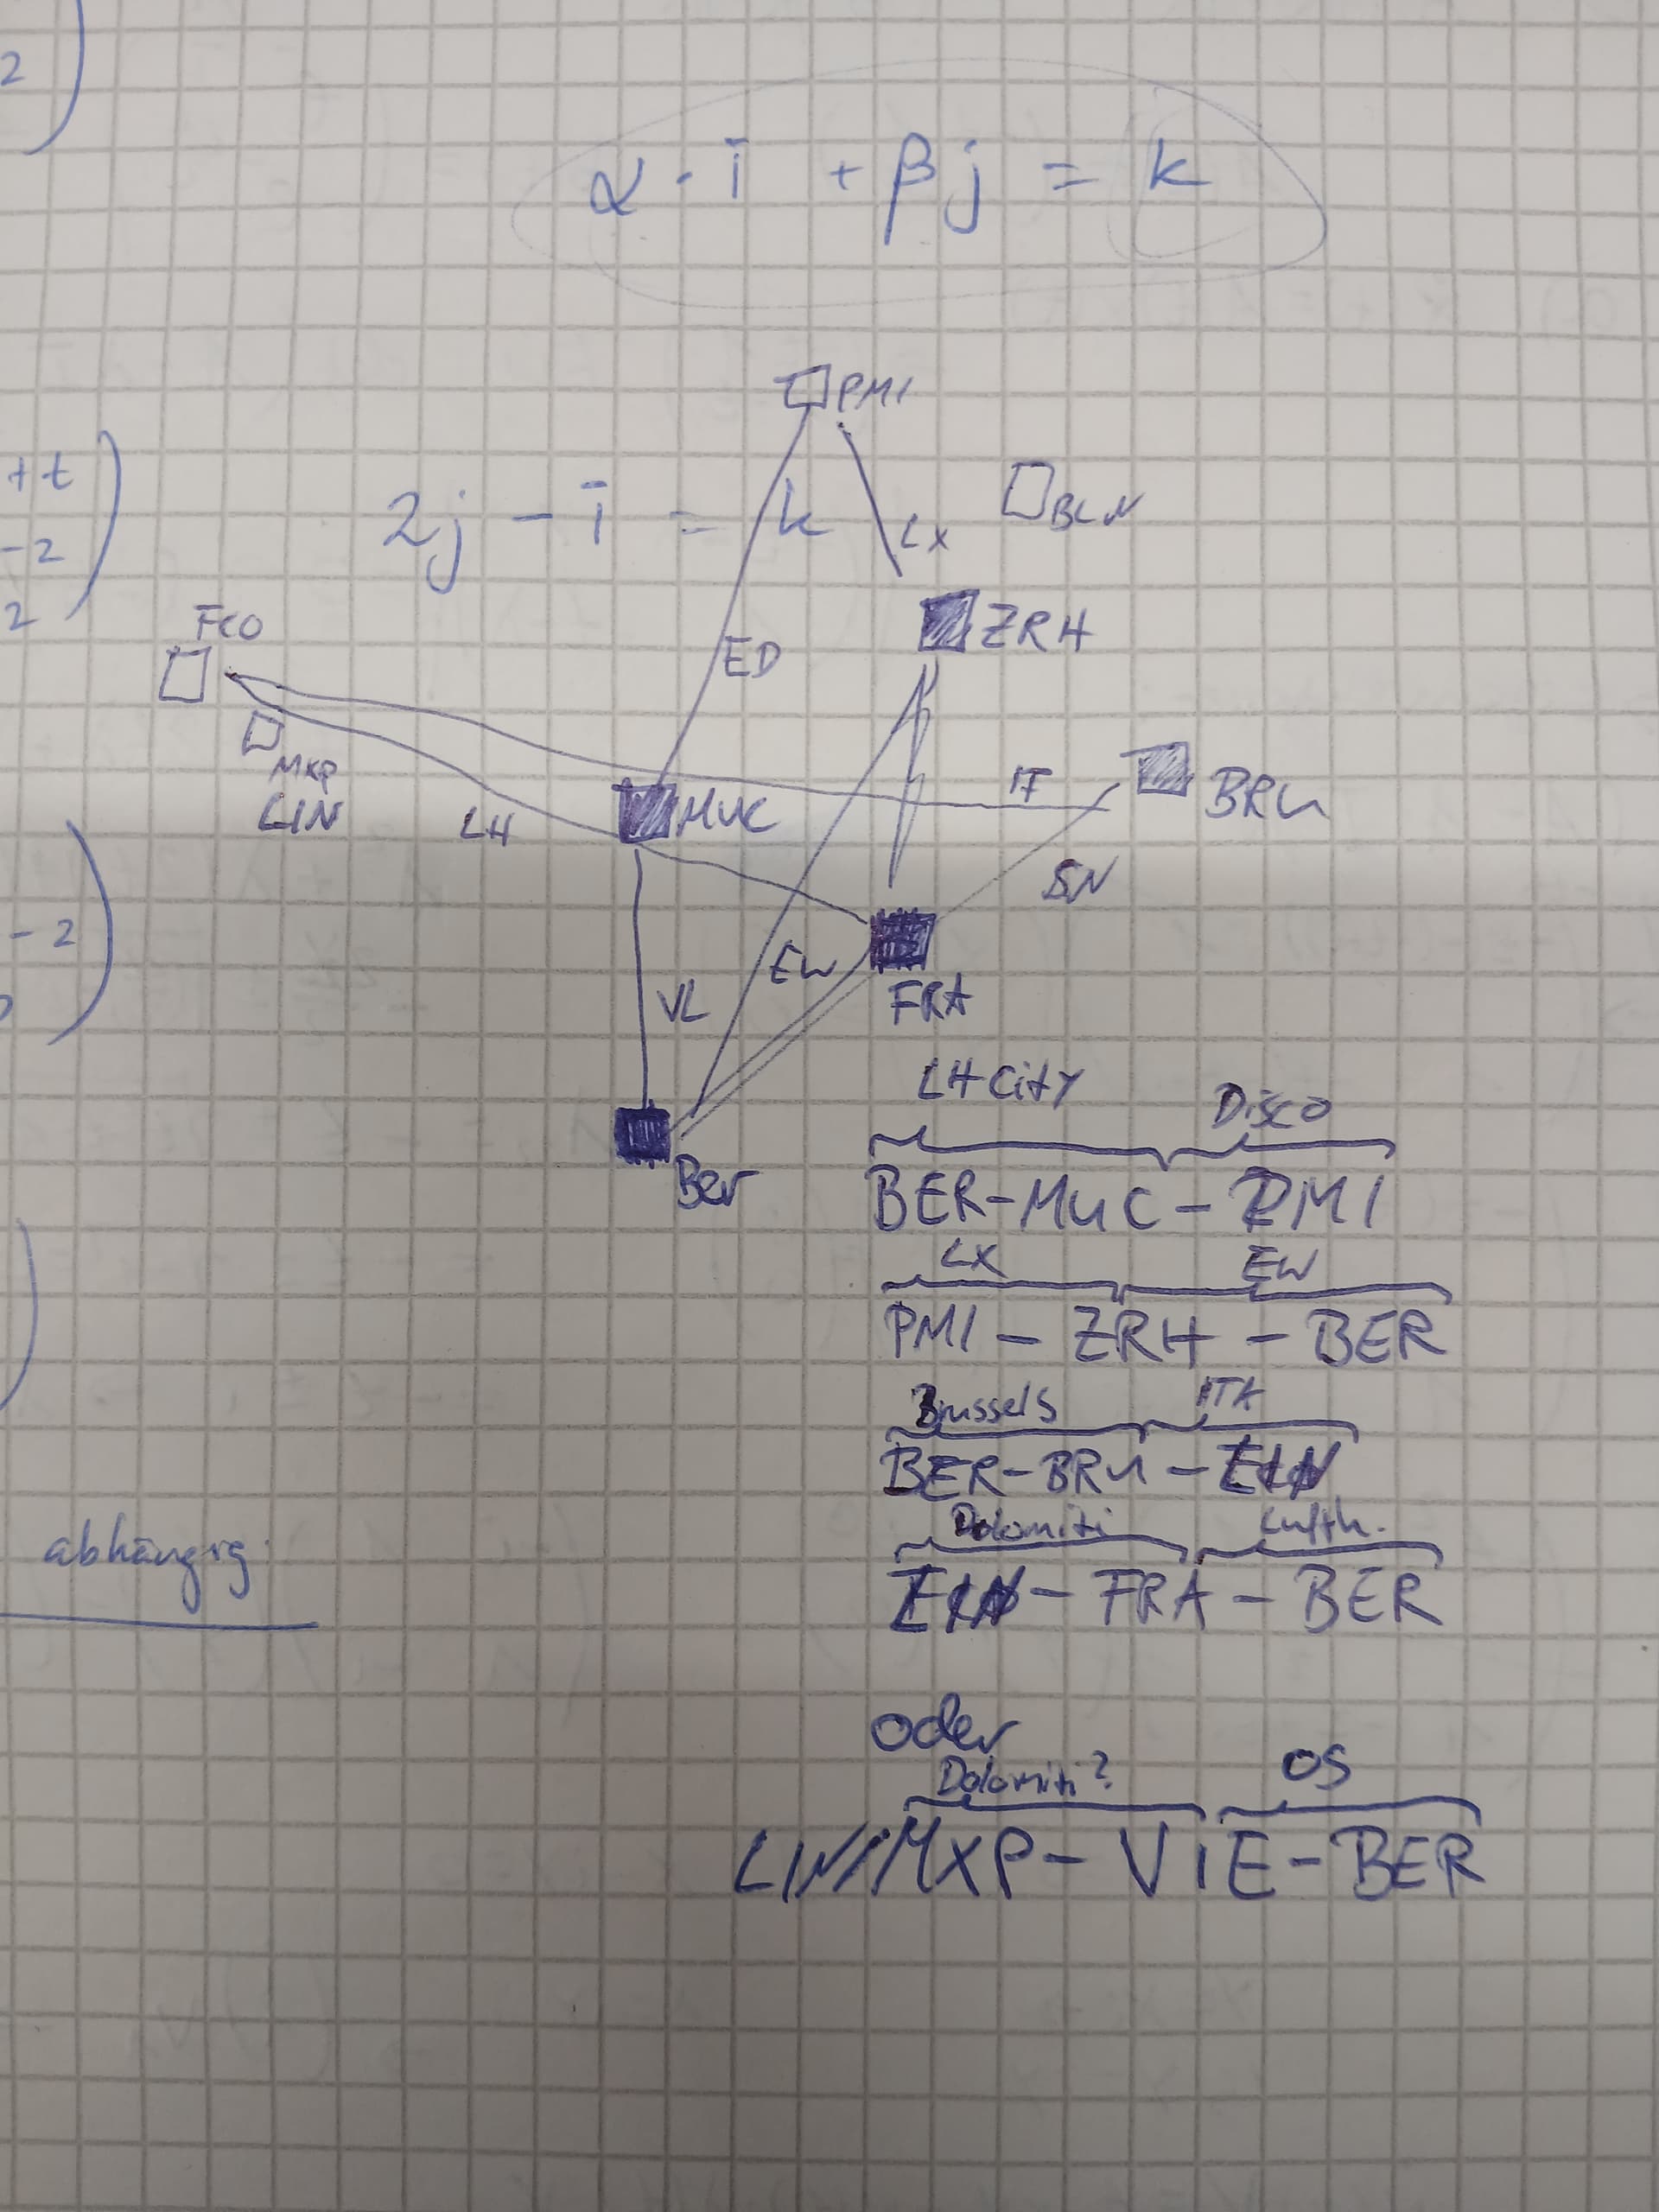 2
α · i + β j = k
PMI
+ t
2j - i = k
BCN
LX
- 2
2
FCO
ZRH
ED
MXP
LIN
LH
MUC
IT
BRU
SN
- 2
EW
VL
FRA
LH City Disco
Ber
BER-MUC-PMI
LX EW
PMI - ZRH - BER
Brussels ITA
BER-BRU-
Dolomiti Lufth.
abhängig
- FRA - BER
oder
Dolomiti? OS
LIN/MXP-ViE-BER